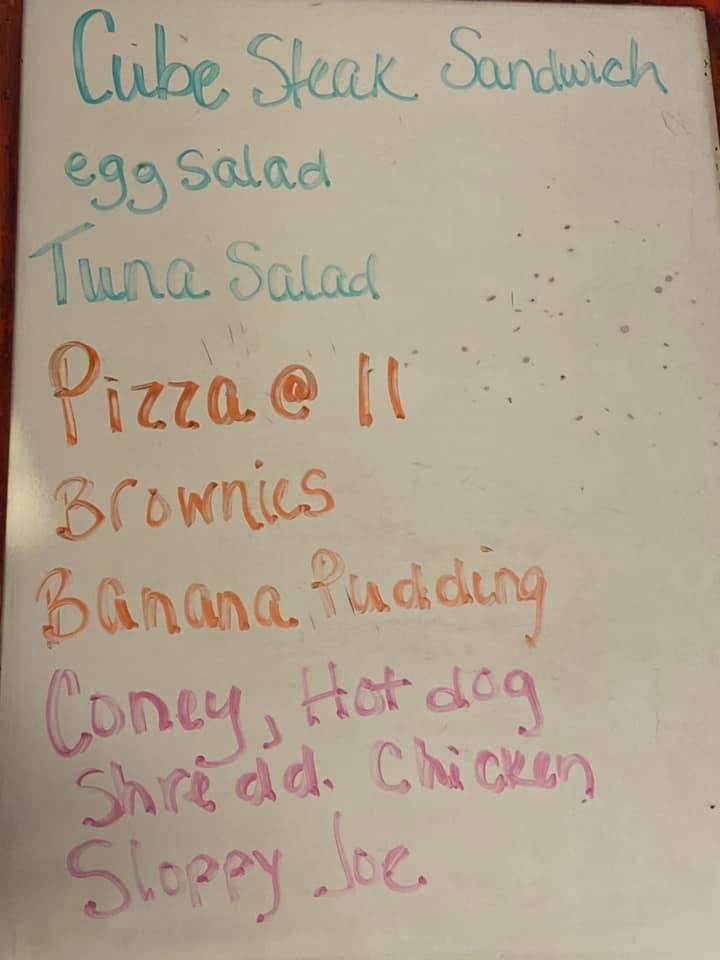 Cube Steak Sandwich
egg salad
Tuna Salad
Pizza @ 11
Brownies
Banana Pudding
Coney, Hot dog
Shredd. Chicken
Sloppy Joe